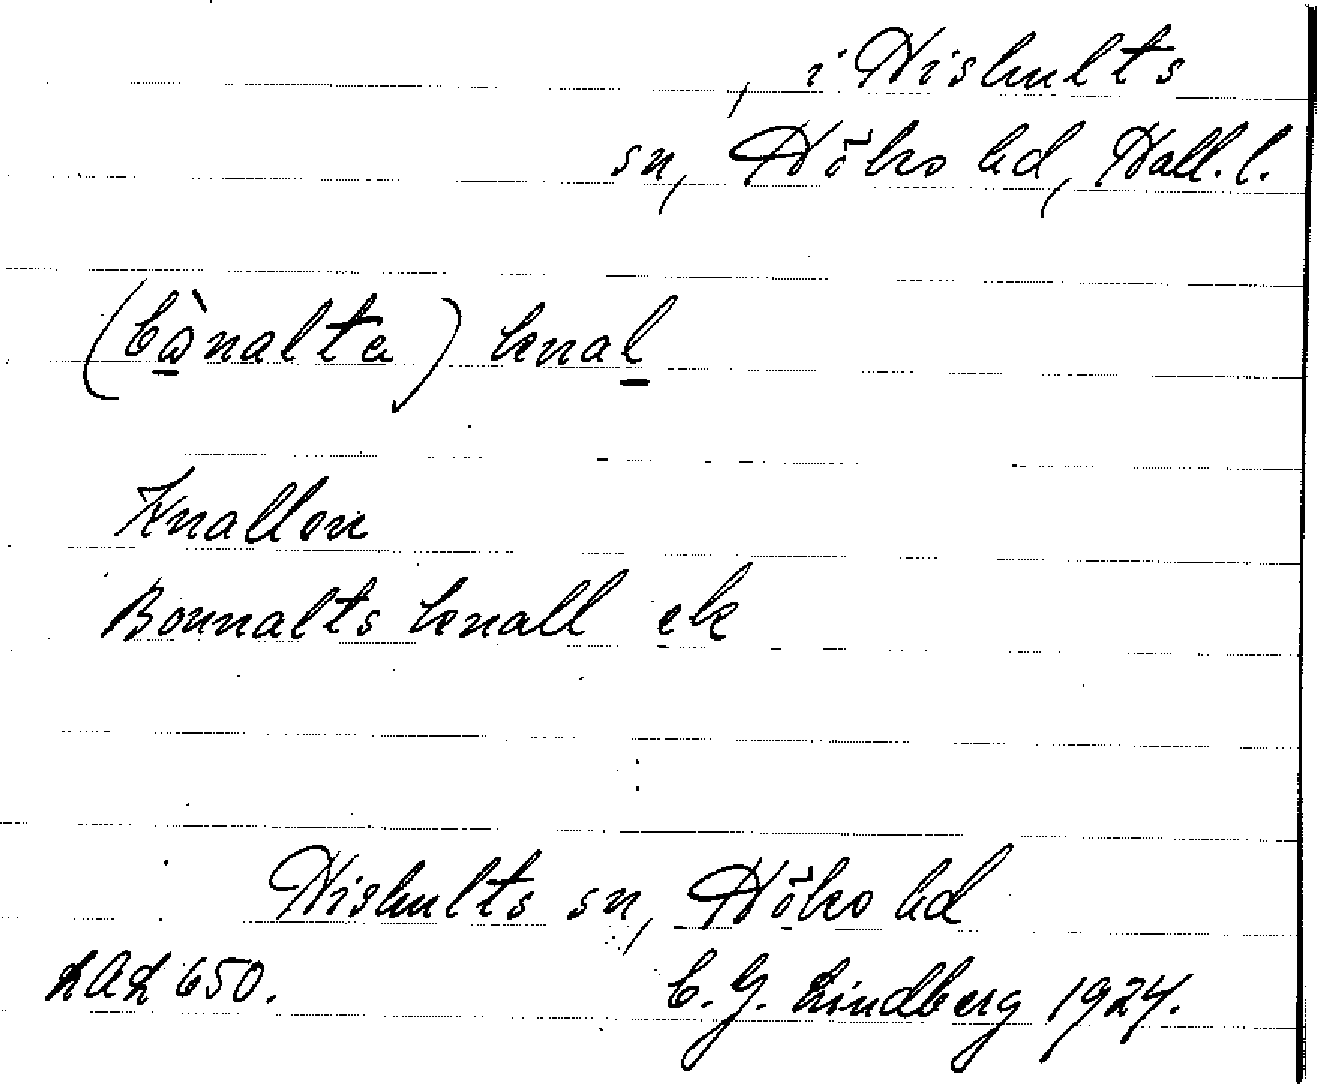 , i Hishults
sn, Höks hd, Hall. l.
(bånalta) knal
Knallen
Bonnalts knall ek
Hishults sn, Höks hd
LAL 650.
C. G. Lindberg 1924.